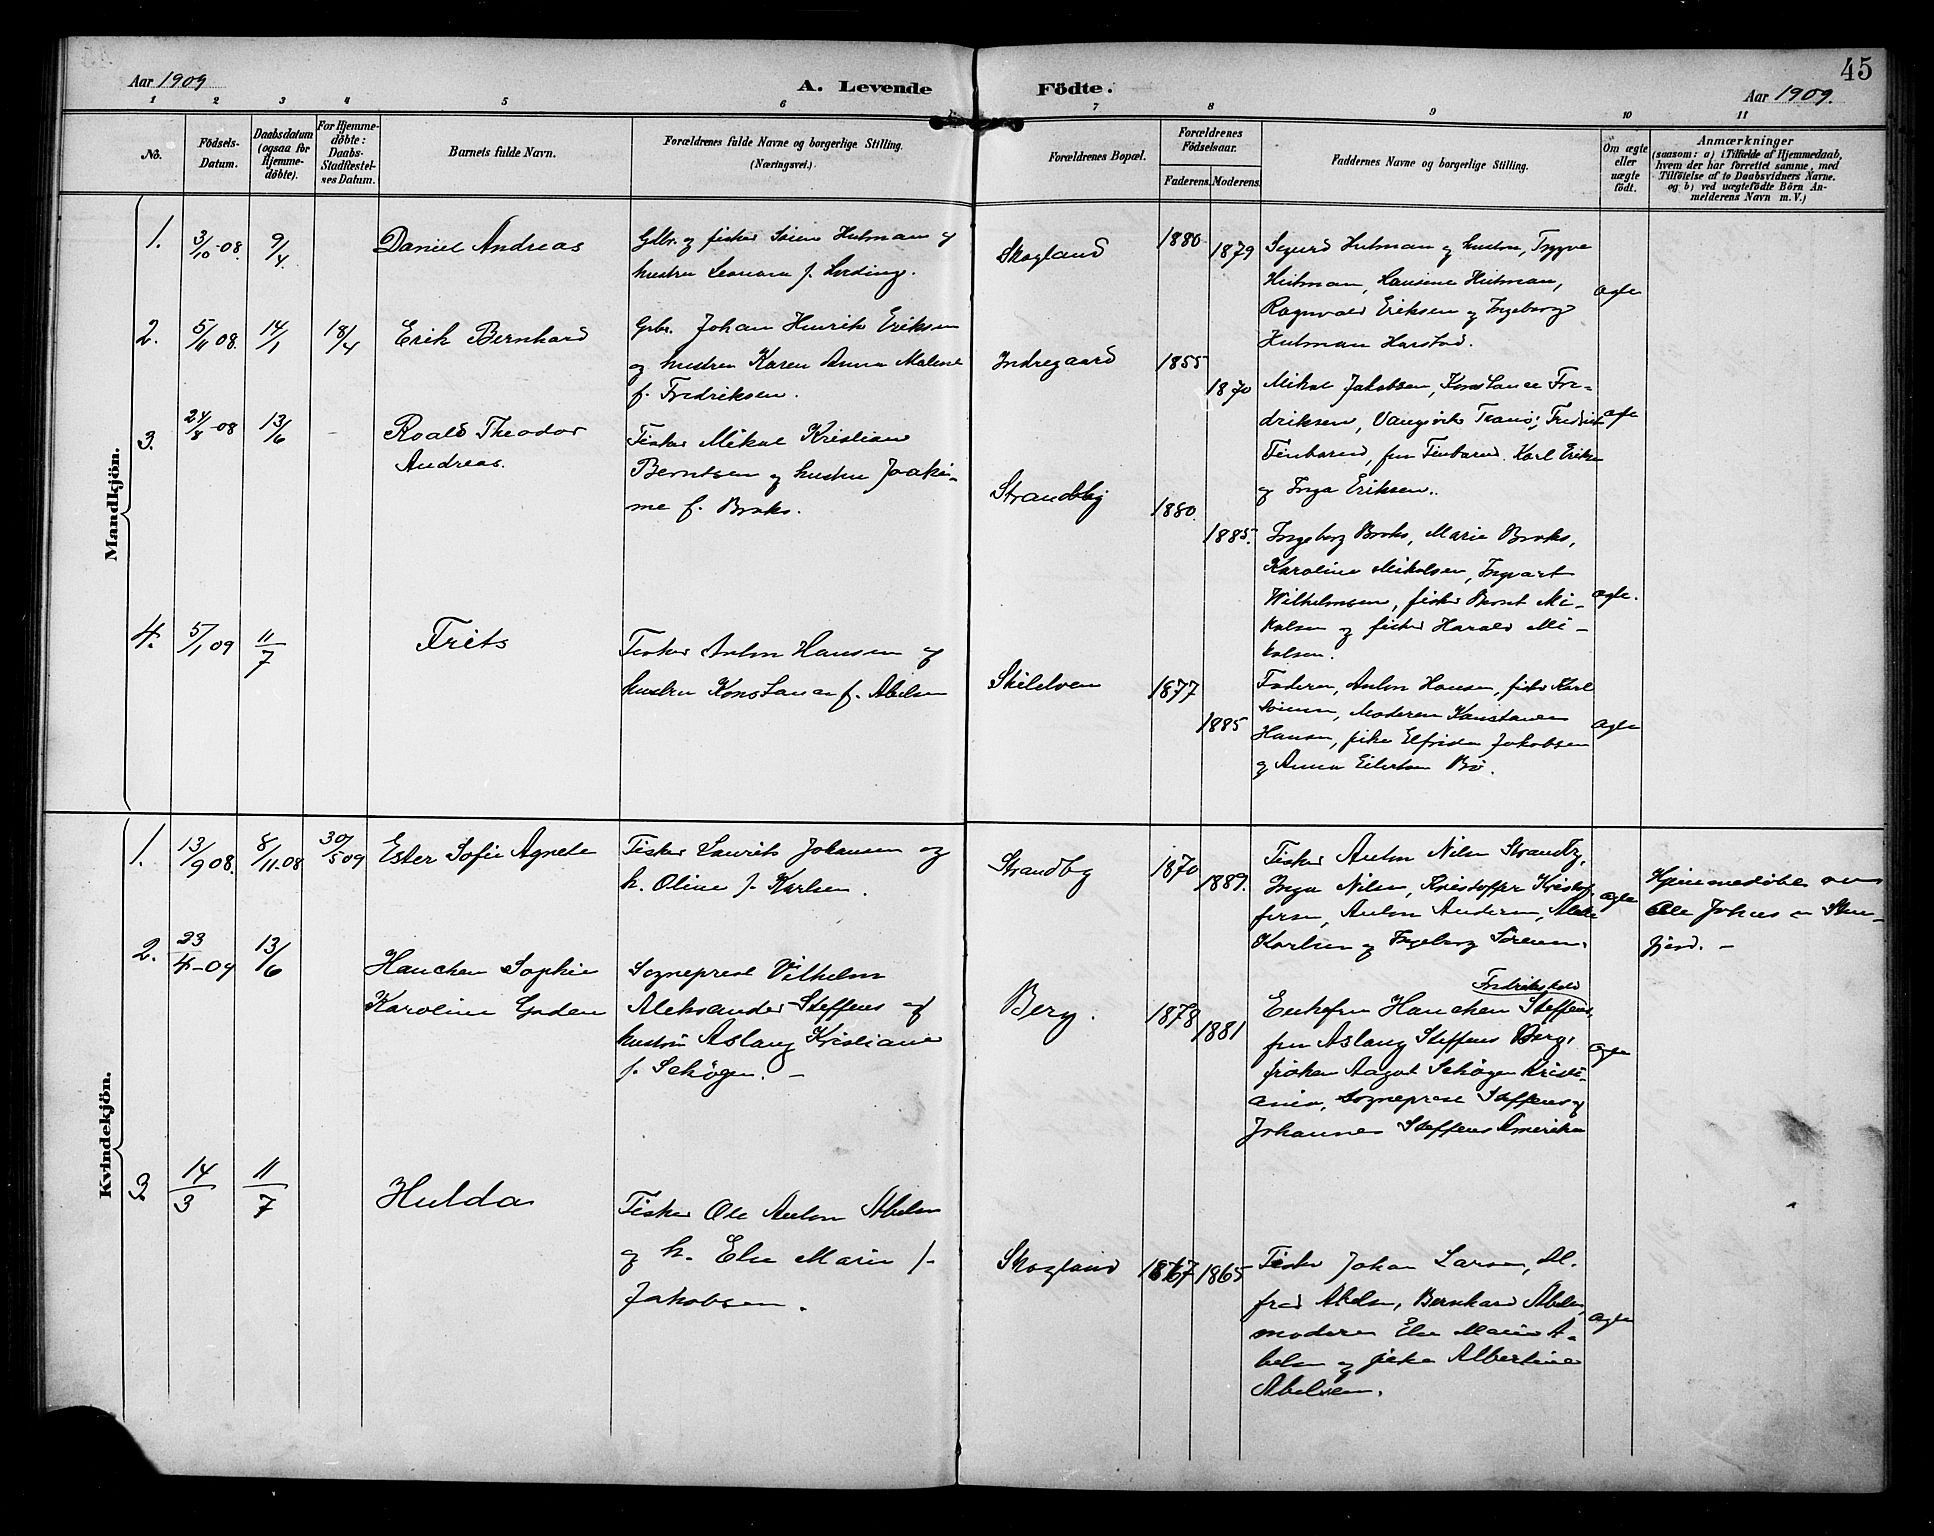 45
Aar 1909
A. Levende Födte.
Aar 1909.
1 2 3 4 5 6 7 8 9 10 11
No.
Födsels-Datum.
Daabsdatum (ogsaa for Hjemme-döbte).
For Hjemme-döbte: Daabs-Stadfæstel-ses Datum.
Barnets fulde Navn.
Forældrenes fulde Navne og borgerlige Stilling.
(Næringsvei.)
Forældrenes Bopæl.
Forældrenes Födselsaar.
Faderens. Moderens.
Faddernes Navne og borgerlige Stilling.
Om ægte eller uægte födt.
Anmærkninger
(saasom: a) i Tilfælde af Hjemmedaab,
hvem der har forrettet samme, med
Tilföielse af to Daabsvidners Navne.
og b) ved uægtefödte Börn An-
melderens Navn m. V.)
Mandkjön.
1. 3/10-08. 9/4. Daniel Andreas
Gbr. og fisker Sören Hutman og
hustru Leonora f. Lording.
Skogland 1880 1879
Sigurd Hutman og hustru, Trygve
Hutman, Hansine Hutman,
Ragnvald Eriksen og Ingeborg
Hutman Harstad.
ægte
2. 5/11 08. 14/1 18/4 Erik Bernhard
Gbr. Johan Henrik Eriksen
og hustru Karen Anna Maline
f. Fredriksen.
Indregaard 1855 1870
Mikal Jakobsen, Konstance Fre-
driksen, Vangsvik Tranö, Fredrik
Finbaren, fru Finbaren. Karl Eriksen
og Inga Eriksen.
ægte
3. 24/8-08 13/6 - Roald Theodor
Andreas.
Fisker Mikal Kristian
Berntsen og hustru Joaki-
me f. Broks.
Strandby 1880. 1885.
Ingeborg Broks, Marie Broks,
Karoline Mikalsen, Ingvart
Wilhelmsen, fisker Bernt Mi-
kalsen og fisker Harald Mi-
kalsen.
ægte.
4. 5/1 09 11/7 Frits
Fisker Anton Hansen og
hustru Konstance f. Abelsen
1877 1885
Faderen, Anton Hansen, fisker Karl
Moderen Konstance
Hansen, pike Elfrida Jakobsen
og Anna Eilertsen Bö.
ægte
Kvindekjön.
1. 13/9 08. 8/11-08 30/5 09 Ester Sofie Agnete
Fisker Laurits Johansen og
h. Oline f. Karlsen.
Strandby 1870 1889.
Fisker Anton Nilsen Strandby,
Inga Nilsen, Kristoffer Kristof-
fersen, Anton Andersen,
Karlsen og Ingeborg Sörensen.
ægte
Hjemmedöbt av
Ole Johnsen
fjord. -
2. 23/4-09 13/6 Hanchen Sophie
Karoline Gaden
Sogneprest Vilhelm
Aleksander Steffens og
hustru Aslaug Kristiane
f. Schögen. -
Berg. 1878 1881
Fredrikshald
Enkefru Hanchen Steffens,
fru Aslaug Steffens Berg,
fröken Aagot Schögen Kristi-
ania, Sogneprest Steffens og
Johannes Steffens Amerika
ægte
3. 14/3 11/7 Hulda
Fisker Ole Anton Abelsen
og h. Else Marie f.
Jakobsen.
Skogland 1867 1865
Fisker Johan Larsen, Al-
fred Abelsen, Bernhard Abelsen,
moderen Else Marie A-
belsen og pike Albertine
Abelsen.
ægte